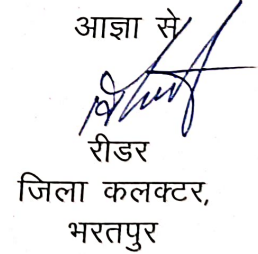 आज्ञा से
रीडर
जिला कलक्टर,
भरतपुर